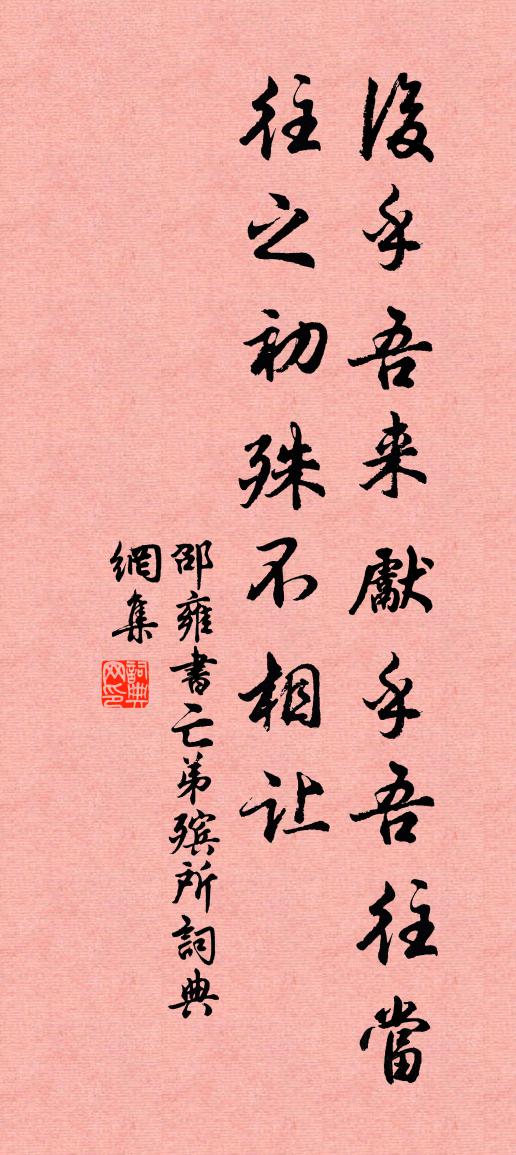 後乎吾来獻乎吾往當
往之初殊不相让
邵雍書亡弟殡所詞典
網集
詞典
网印